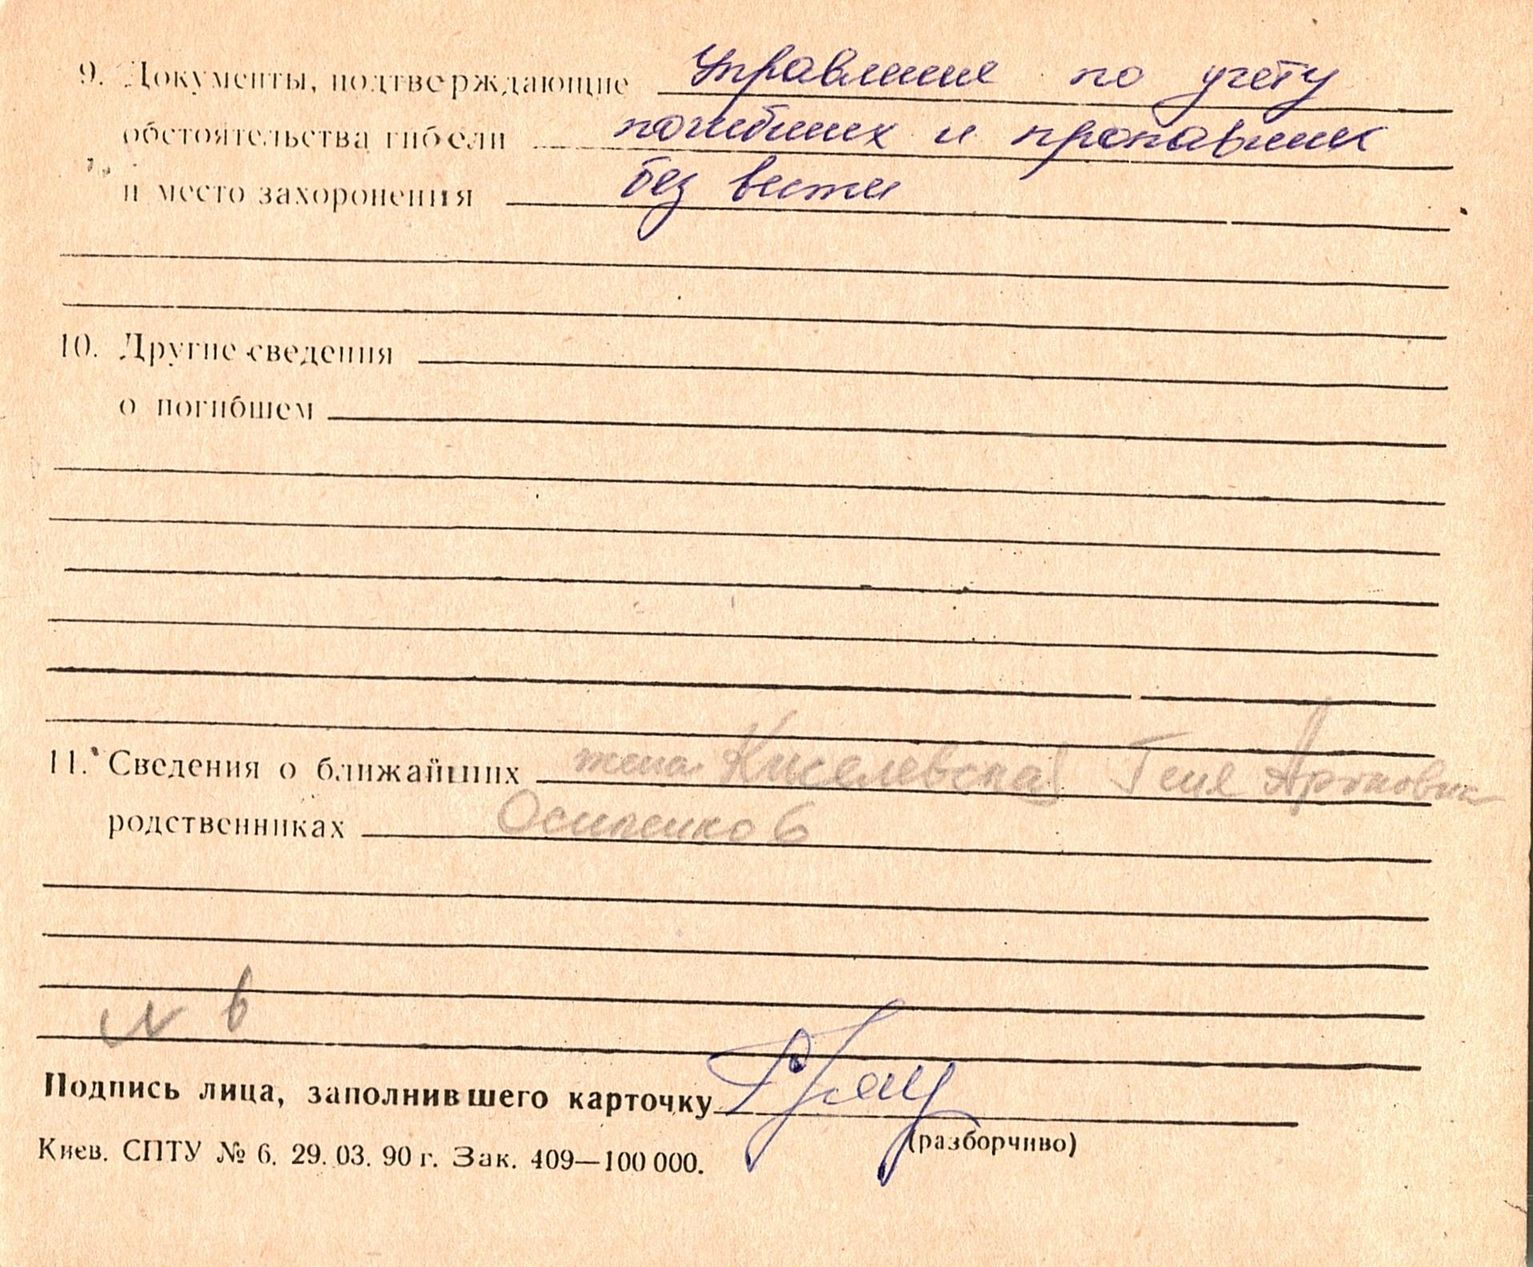 9. Документы, подтверждающие Управление по учету
обстоятельства гибели погибших и пропавших
и место захоронения без вести
10. Другие сведения
о погибшем
11. Сведения о ближайших жена Киселевская Геня
родственниках Осипенко 6
N 6
Подпись лица, заполнившего карточку
(разборчиво)
Киев. СПТУ № 6. 29. 03. 90 г. Зак. 409—100 000.